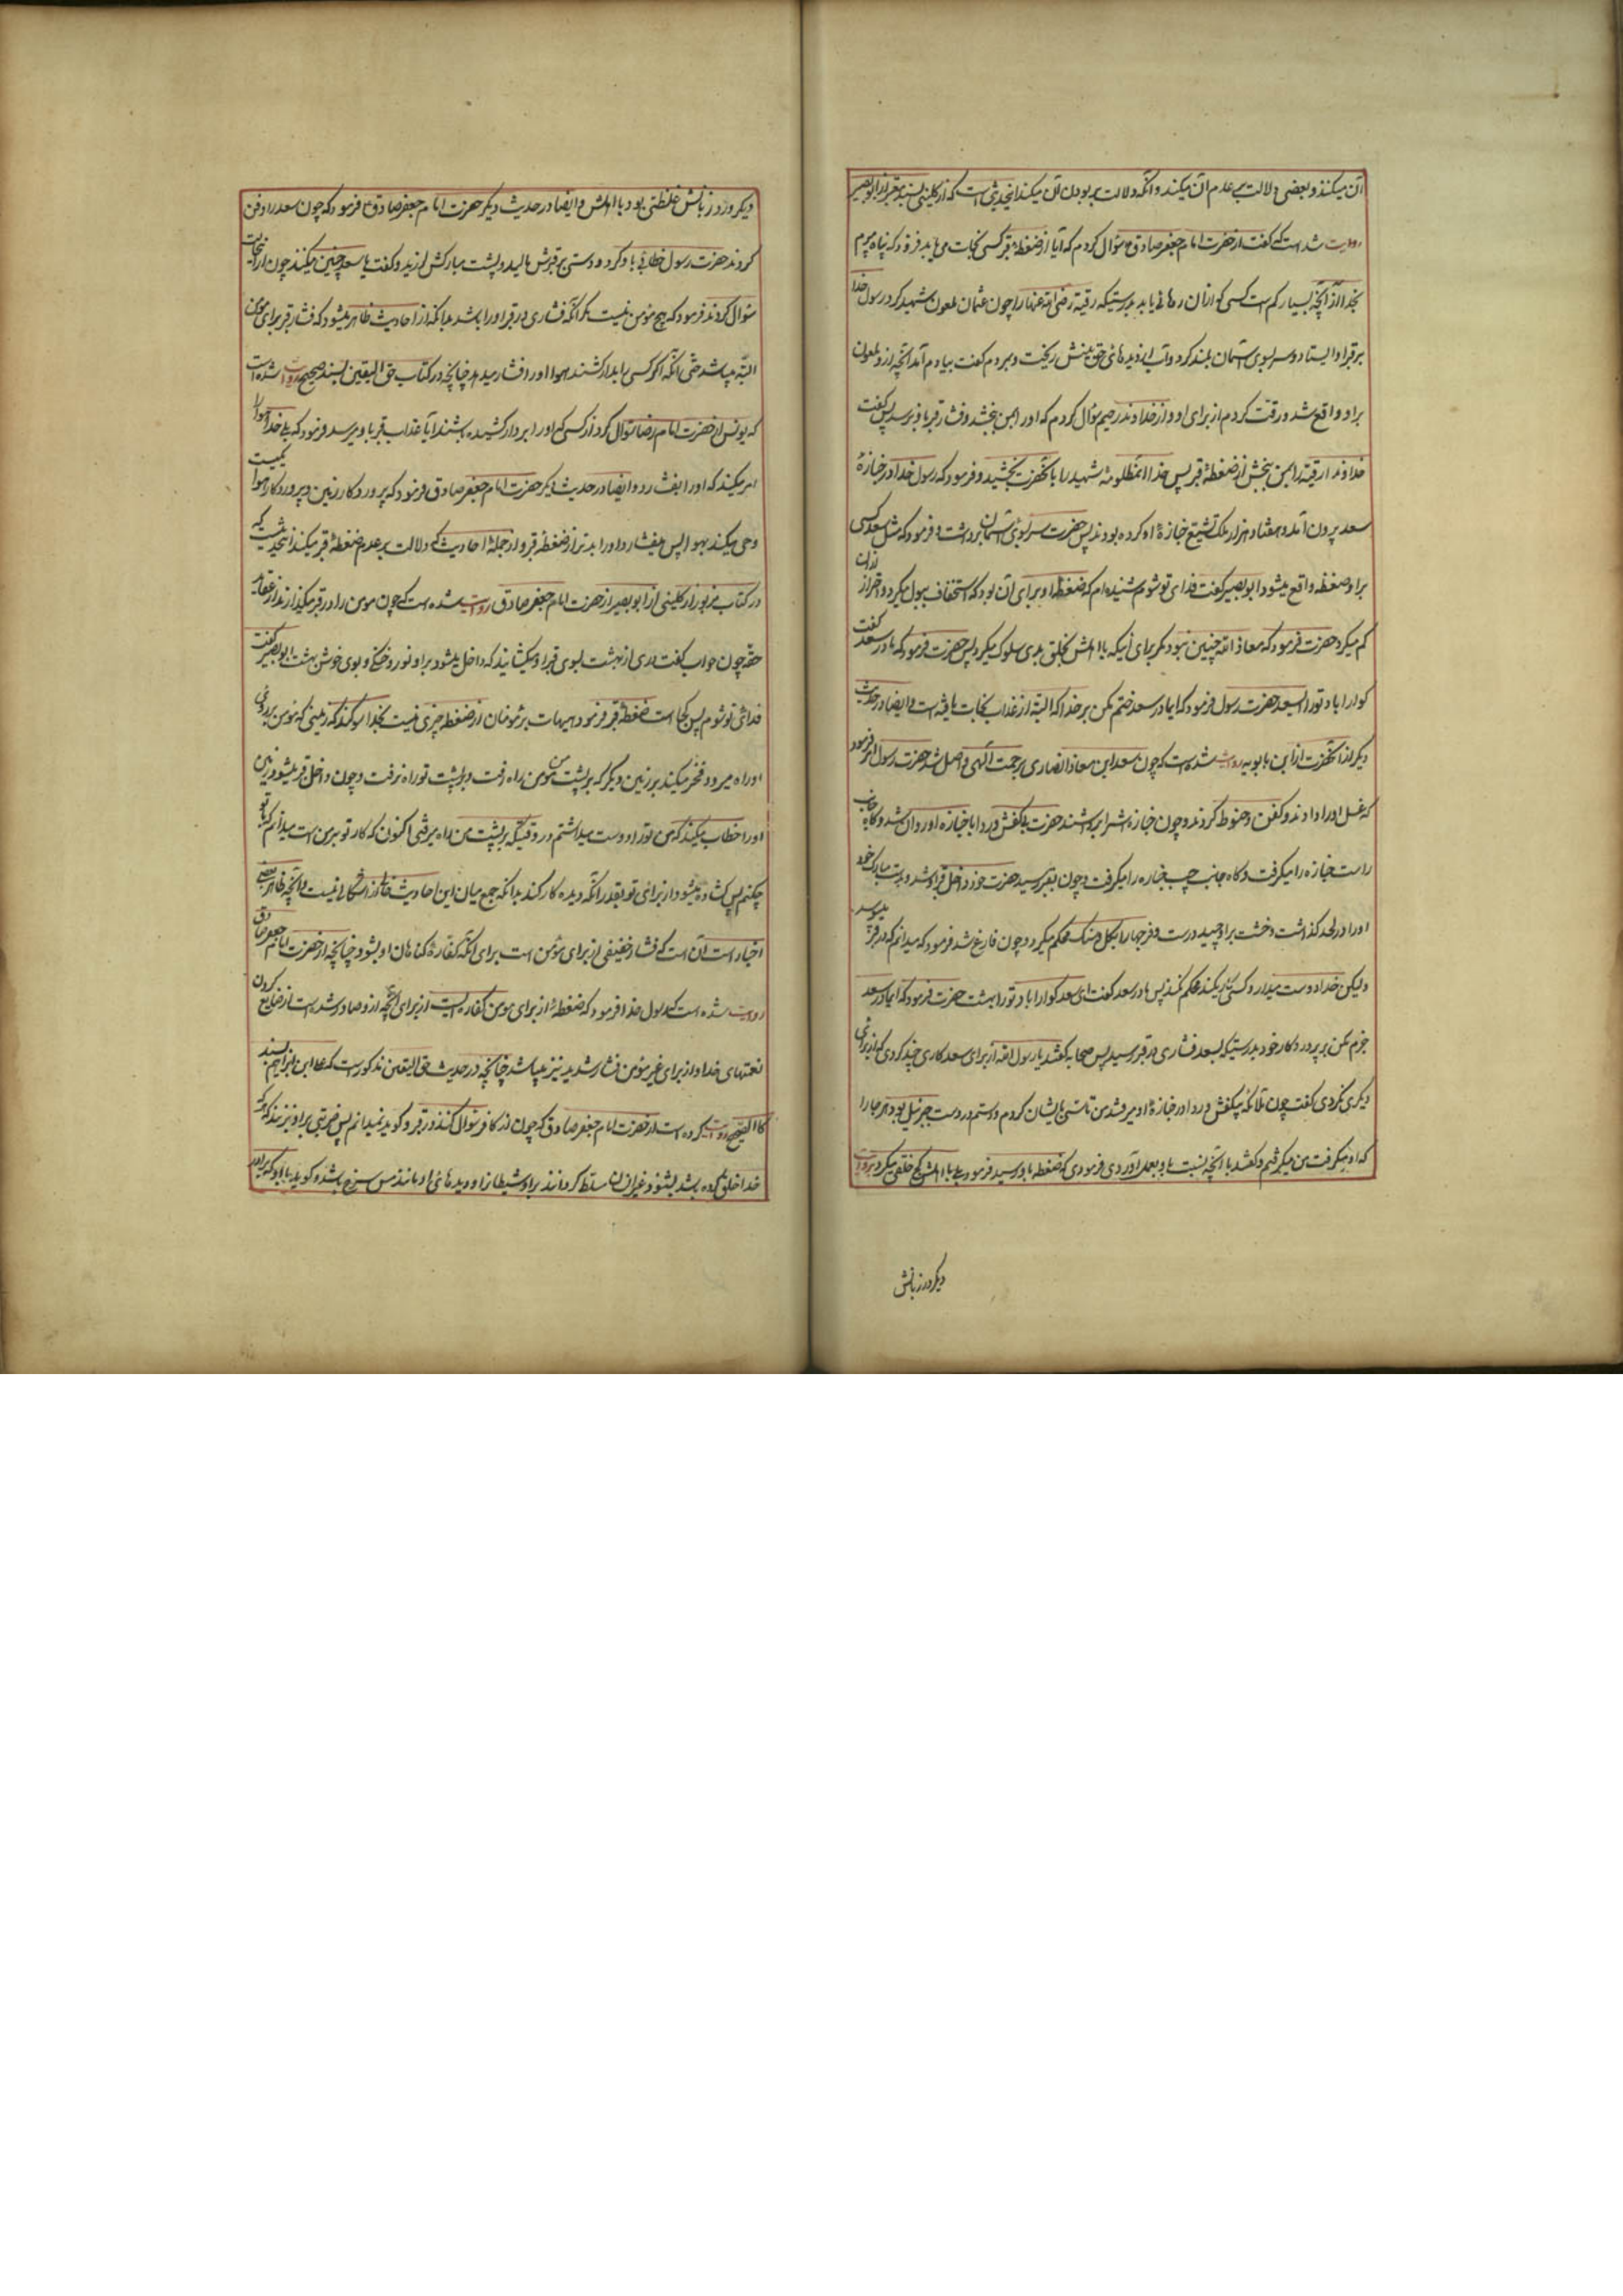 آن میکنند و بعضی دلالت بر عدم آن میکنند و آنکه دلالت بر بودن آن میکند آنحدیثی است که از کلینی بسند معتبر از ابو بصیر
روایت شده است که گفت از حضرت امام جعفر صادق ع سؤال کردم که آیا از ضغطهٔ قبر کسی نجات می یابد فرمود که پناه میبرم
بخدا از آن چه بسیار کم است کسی که از آن رهائی یابد بدرستیکه رقیه رضی الله عنها را چون عثمان ملعون شهید کرد رسول خدا
بر قبر او ایستاد و سر بسوی آسمان بلند کرد و آب از دیده های حق بینش ریخت و بمردم گفت بیادم آمد آنچه از و ملعون
بر او واقع شد و رقت کردم از برای او و از خداوند رحیم سؤال کردم که او را بمن بخشد و فشار قبر باو نرسد پس گفت
خداوندا رقیه را بمن ببخش از ضغطهٔ قبر پس خدا آنمظلومهٔ شهیده را بآنحضرت بخشید و فرمود که رسول خدا در جنازهٔ
سعد بیرون آمد و هفتاد هزار ملک تشییع جنازهٔ او کرده بودند پس حضرت سر بسوی آسمان برداشت و فرمود که مثل سعد کسی
بر او ضغطه واقع میشود ابو بصیر گفت فدای تو شوم شنیده ام که ضغطهٔ او برای آن بود که استخفاف ببول میکرد و احتراز از آن
کم میکرد حضرت فرمود که معاذ الله چنین نبود مگر برای اینکه با اهلش بخلق بدی سلوک میکرد پس حضرت فرمود که مادر سعد گفت
گوارا باد تو را ای سعد حضرت رسول فرمود که ای مادر سعد ختم مکن بر خدا که البته از عذاب نجات یافته است و ایضا در حدیث
دیگر از آنحضرت از ابن بابویه روایت شده است که چون سعد ابن معاذ انصاری برحمت الهی واصل شد حضرت رسول امر فرمود
که غسل او را دادند و کفن و حنوط کردند و چون جنازه اش را برداشتند حضرت بیکفش و ردا با جنازه او روان شد و گاه جانب
راست جنازه را میگرفت و گاه جانب چپ جنازه را میگرفت و چون بقبر رسید حضرت خود داخل قبر او شد و بدست مبارک خود
او را در لحد گذاشت و خشت بر او چید و درست و فرجها را بگل و سنگ محکم میکرد و چون فارغ شد فرمود که میدانم که در قبر میپوسد
ولیکن خدا دوست میدارد کسی که کار میکند محکم کند پس مادر سعد گفت ای سعد گوارا باد تو را بهشت حضرت فرمود که ای مادر سعد
جزم مکن بر پروردگار خود بدرستیکه بسعد فشاری در قبر رسید پس صحابه گفتند یا رسول الله از برای سعد کاری چند کردی که از برای
دیگری نکردی گفت چون ملائکه بیکفش و ردا در جنازهٔ او میرفتند من تاسی بایشان کردم و دستم در دست جبرئیل بود هر جا را
که او میگرفت من میگرفتم و گفتند با آنچه نسبت باو بعمل آوردی فرمودی که ضغطه باو رسید فرمود بلی با اهلش کج خلقی میکرد
دیگر در زبانش
دیگر در زبانش غلظتی بود با اهلش و ایضا در حدیث دیگر حضرت امام جعفر صادق ع فرمود که چون سعد را دفن
کردند حضرت رسول خطابی باو کرد و دستی بر قبرش مالید و پشت مبارکش لرزید و گفت با سعد چنین میکنند چون از آنجناب
سؤال کردند فرمود که هیچ مؤمن نیست مگر آنکه فشاری در قبر او را باشد بدانکه از احادیث ظاهر میشود که فشار قبر برای مؤمن
البته میباشد حتی آنکه اگر کسی را بدار کشند هوا او را فشار میدهد چنانچه در کتاب حق الیقین بسند صحیح روایت شده است
که یونس از حضرت امام رضا سؤال کرد از کسی که او را بر دار کشیده باشند آیا عذاب قبر باو میرسد فرمود که بلی خدا هوا را
امر میکند که او را بفشارد و ایضا در حدیث دیگر حضرت امام جعفر صادق فرمود که پروردگار زمین و پروردگار هوا یکیست
وحی میکند بهوا پس میفشارد او را بدتر از ضغطهٔ قبر و از جملهٔ احادیث که دلالت بر عدم ضغطهٔ قبر میکند آنحدیث است که
در کتاب مزبور از کلینی از ابو بصیر از حضرت امام جعفر صادق روایت شده است که چون مومن را در قبر میگذارند از عقاید
حقه چون جواب گفت دری از بهشت بسوی قبر او میگشایند که داخل میشود بر او نور و خنکی و بوی خوش بهشت ابو بصیر گفت
فدای تو شوم پس کجا است ضغطهٔ قبر فرمود هیهات بر مؤمنان از ضغطه چیزی نیست بخدا سوگند که زمینی که مؤمن بر روی
او راه میرود فخر میکند بر زمین دیگر که بر پشت من مومن راه رفت و بر پشت تو راه نرفت و چون داخل قبر میشود زمین
او را خطاب میکند که من تو را دوست میداشتم در وقتیکه بر پشت من راه میرفتی اکنون که کار تو بر من است میدانم که با تو
چکنم پس گشاده میشود از برای تو بقدر آنکه دیده کار کند بدانکه جمع میان این احادیث خالی از اشکالی نیست و آنچه ظاهر بعضی
اخبار است آن است که فشار خفیفی از برای مؤمن است برای آنکه کفارهٔ گناهان او بشود چنانچه از حضرت امام جعفر صادق
روایت شده است که رسول خدا فرمود که ضغطه از برای مومن کفاره ایست از برای آنچه از و صادر شده است از ضایع کردن
نعمتهای خدا و از برای غیر مؤمن فشار شدید نیز میباشد چنانچه در حدیث حق الیقین مذکور است که علی ابن ابراهیم بسند
کالصحیح روایت کرده است از حضرت امام جعفر صادق که چون از کافر سؤال کنند در قبر و گوید نمیدانم پس ضربتی بر او بزنند که هر که
خدا خلق کرده باشد بشنود غیر انسان و مسلط گردانند بر او شیطانی را و دیده های او مانند مس سرخ باشد و گوید باو که برادر